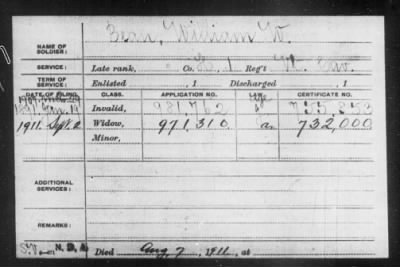 NAME OF SOLDIER: Bean, William W.
SERVICE: Late rank, Co. G, 1 Reg't Cav.
TERM OF SERVICE: Enlisted , 1 Discharged , 1
DATE OF FILING. CLASS. APPLICATION NO. LAW. CERTIFICATE NO.
Invalid, 981,762 755,853
1911. Sept. 2 Widow, 971,310 a. 732,000
Minor,
ADDITIONAL SERVICES:
REMARKS:
N. D. A. Died Aug. 7, 1911, at